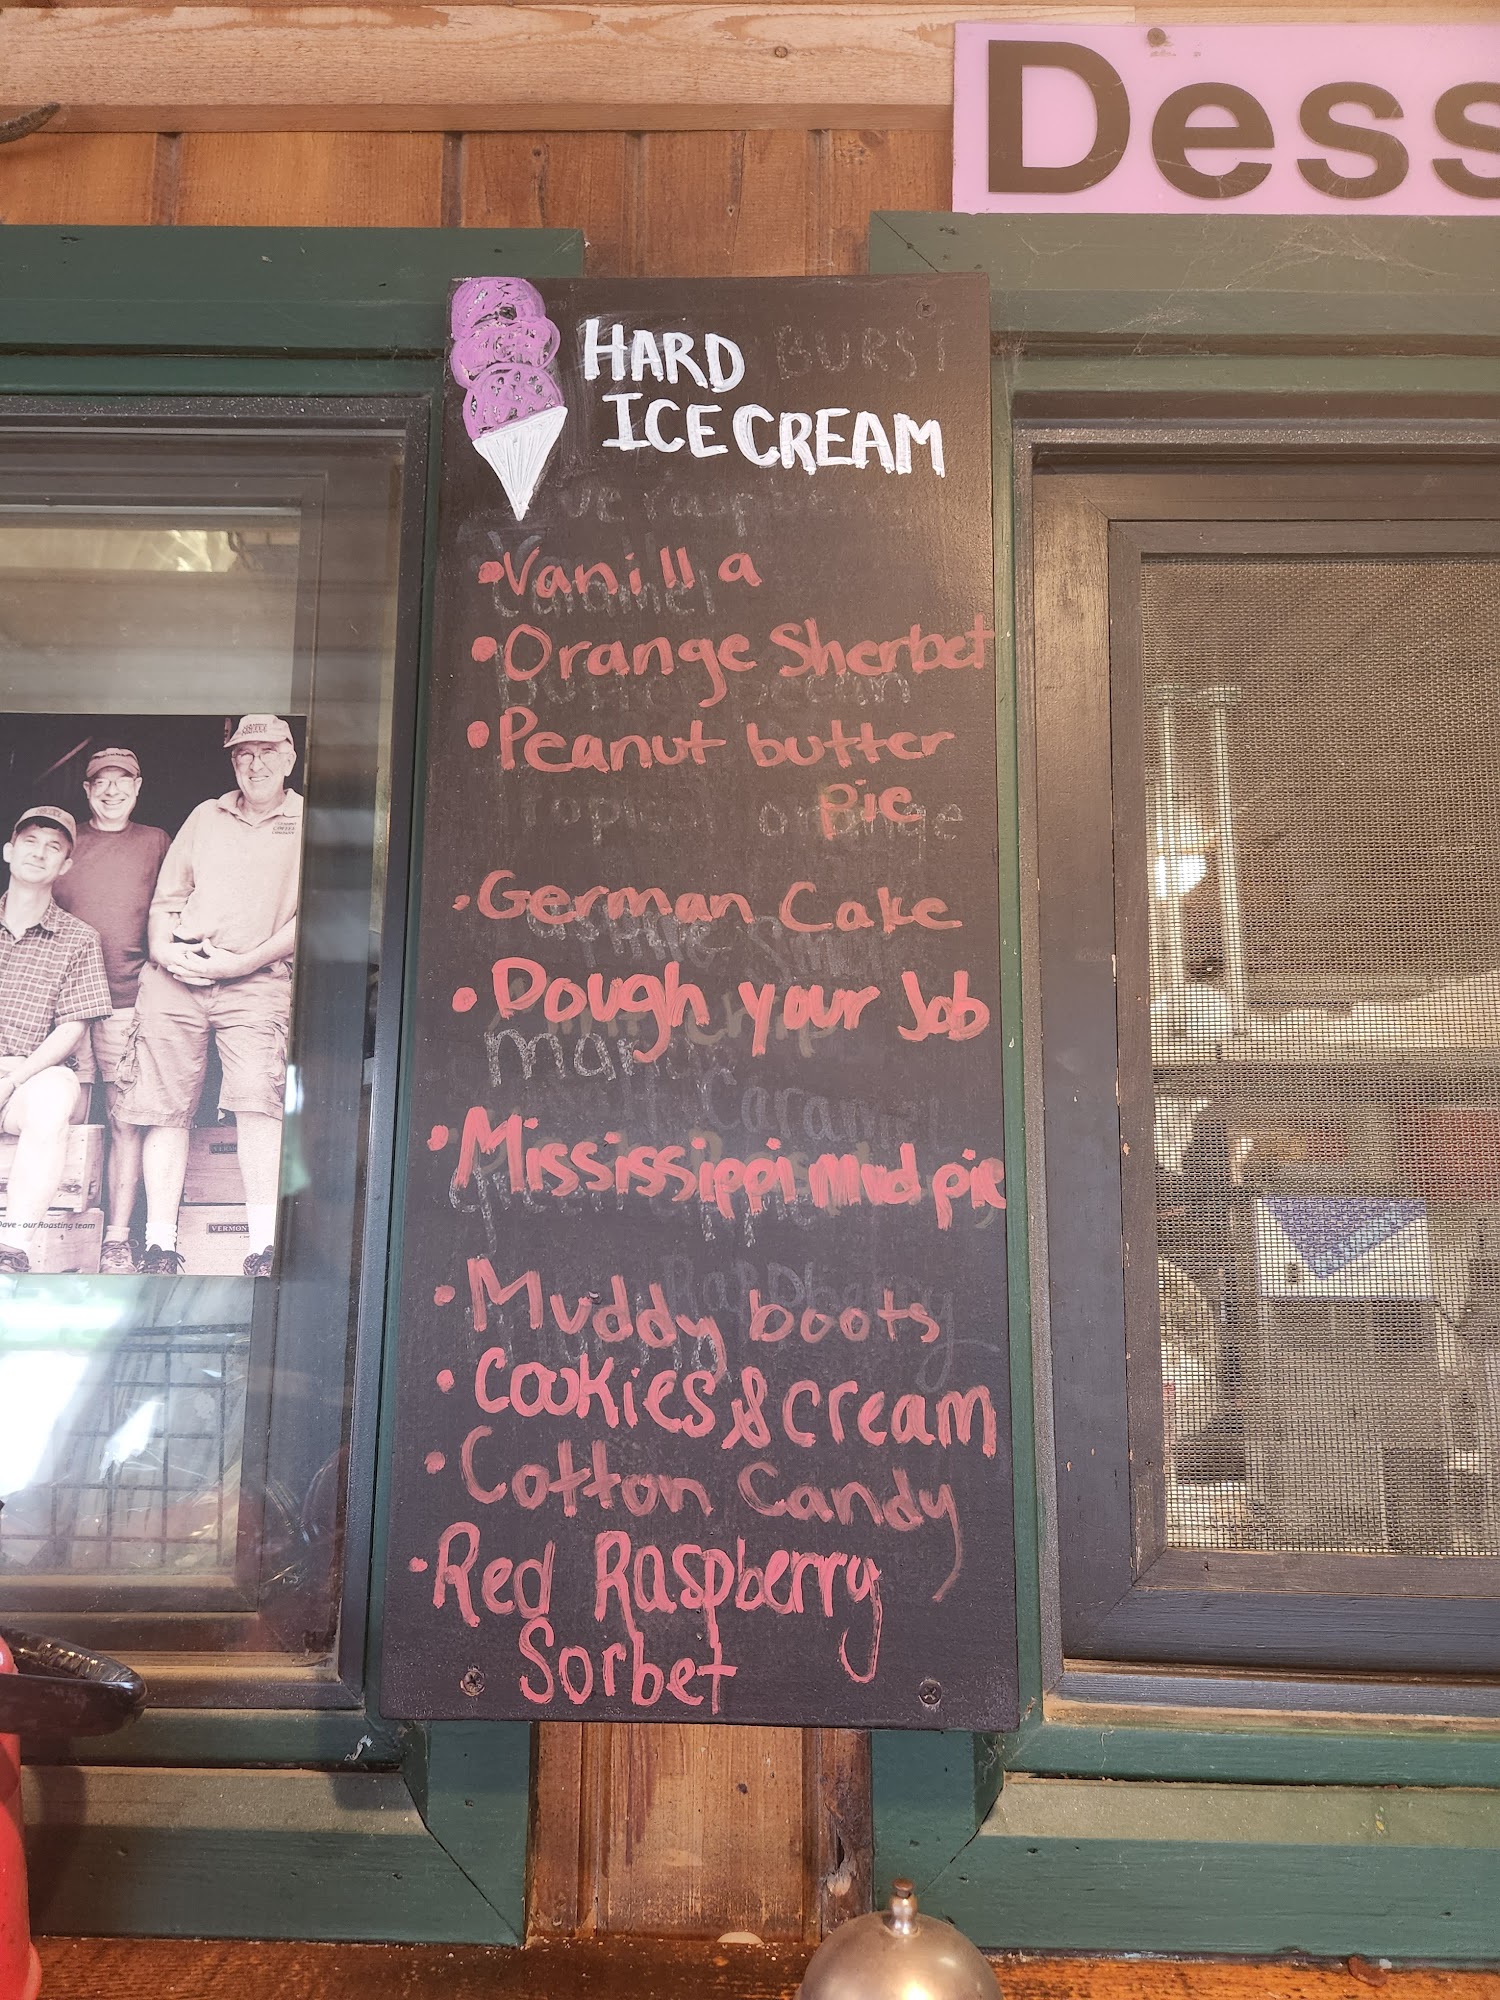 Dess
HARD BURST
ICE CREAM
Vanilla
Caramel
• Orange Sherbet
• Peanut butter
pie
Tropical orange
• German Cake
• Dough your Job
• Mississippi Mud pie
Caramel
• Muddy boots
• Cookies & cream
• Cotton Candy
• Red Raspberry
Sorbet
Dave - our Roasting team
VERMONT